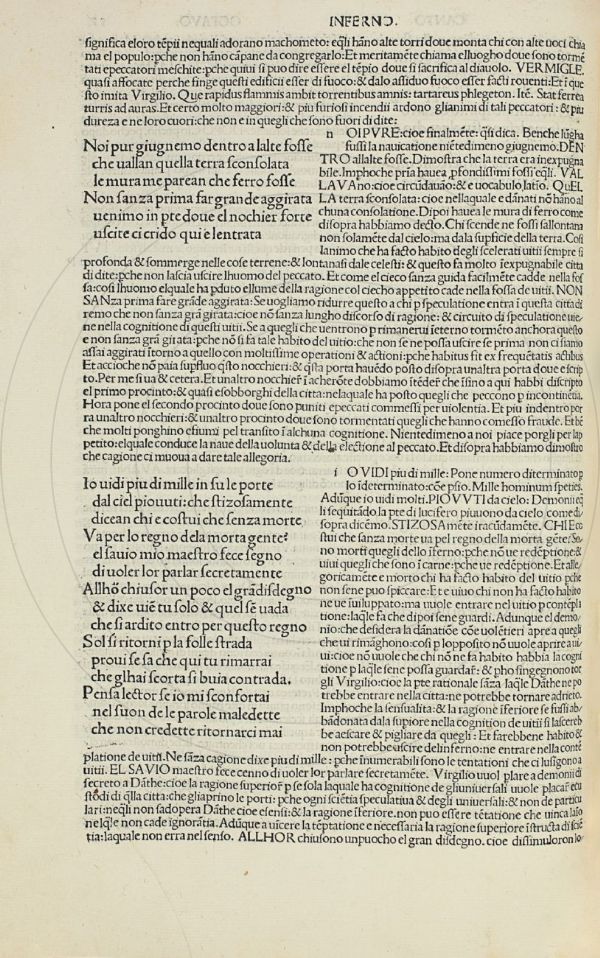 INFERNO.
significa eloro tẽpii nequali adorano machometo: eq̃li hãno alte torri doue monta chi con alte uoci chia
ma el populo: pche non hãno cãpane da congregarlo: Et meritamẽte chiama elluogho doue sono tormẽ
tati epeccatori meschite: pche quiui si puo dire essere el tẽpio doue si sacrifica al diauolo. VERMIGLE.
quasi affocate perche finge questi edificii esser di fuoco: & dalo assiduo fuoco esser facti rouenti: Et ĩ que
sto imita Virgilio. Que rapidus flammis ambit torrentibus amnis: tartareus phlegeton. Itẽ. Stat ferrea
turris ad auras. Et certo molto maggiori: & piu furiosi incendii ardono glianimi di tali peccatori: & piu
dureza e ne loro cuori: che non e in quegli che sono fuori di dite:
Noi pur giugnemo dentro a lalte fosse
che uallan quella terra sconsolata
le mura me parean che ferro fosse
Non sanza prima far grande aggirata
uenimo in pte doue el nochier forte
uscite ci crido qui e lentrata
n OI PVRE: cioe finalmẽte: q̃si dica. Benche lũgha
fussi la nauicatione niẽtedimeno giugnemo. DEN
TRO allalte fosse. Dimostra che la terra era inexpugna
bile. Imphoche pria hauea, pfondissimi fossi eq̃li. VAL
LAVAno: cioe circũdauão: & e uocabulo latĩo. QuEL
LA terra sconsolata: cioe nellaquale e dãnati nõ hãno al
chuna consolatione. Dipoi hauea le mura di ferro come
disopra habbiamo decto. Chi scende ne fossi sallontana
non solamẽte dal cielo: ma da la supficie della terra. Cosi
lanimo che ha facto habito degli scelerati uitii sempre si
profonda & sommerge nelle cose terrene: & lontanasi dale celesti: & questo fa molto ĩexpugnabile citta
di dite: pche non lascia uscire lhuomo del peccato. Et come el cieco sanza guida facilmẽte cadde nella fos
sa: cosi lhuomo elquale ha pduto ellume della ragione col ciecho appetito cade nella fossa de uitii. NON
SANza prima fare grãde aggirata: Se uogliamo ridurre questo a chi p speculatione entra ĩ questa citta di
remo che non sanza grã girata: cioe nõ sanza lungho discorso di ragione: & circuito di speculatione uie
ne nella cognitione di questi uitii. Se a quegli che uentrono p rimanerui ĩ eterno tormẽto anchora questo
e non sanza grã girata: pche nõ si fa tale habito del uitio: che non se ne possa uscire se prima non ci siamo
assai aggirati ĩtorno a quello con moltissime operationi & actioni: pche habitus fit ex frequẽtatis actibus
Et accioche nõ paia supfluo q̃sto nocchieri: & q̃sta porta hauẽdo posto disopra unaltra porta doue e scrip
to. Per me si ua & cetera. Et unaltro nocchier ĩ acherõte dobbiamo ĩtẽder che ĩsino a qui habbi discripto
el primo procinto: & quasi esobborghi della citta: nelaquale ha posto quegli che peccono p incontinẽtia.
Hora pone el secondo procinto doue sono puniti epeccati commessi per uiolentia. Et piu indentro por
ra unaltro nocchieri: & unaltro procinto doue sono tormentati quegli che hanno comesso fraude. Et bẽ
che molti ponghino efiumi pel transito ĩ alchuna cognitione. Nientedimeno a noi piace porgli per lap
petito: elquale conduce la naue della uolunta & della electione al peccato. Et disopra habbiamo dimostro
che cagione ci muoua a dare tale allegoria.
Io uidi piu di mille in su le porte
dal ciel piouuti: che stizosamente
dicean chi e costui che senza morte
Va per lo regno dela morta gente?
el sauio mio maestro fece segno
di uoler lor parlar secretamente
Allhõ chiusor un poco el grã disdegno
& dixe uiẽ tu solo & quel se uada
che si ardito entro per questo regno
Sol si ritorni p la folle strada
proui se sa che qui tu rimarrai
che glhai scorta si buia contrada.
Pensa lector se io mi sconfortai
nel suon de le parole maledette
che non credette ritornarci mai
i O VIDI piu di mille: Pone numero diterminato p
lo ĩdeterminato: cõe psio. Mille hominum species.
Adũque io uidi molti. PIOVVTI da cielo: Demonii eq̃
li seq̃uitãdo la pte di lucifero piuuono da cielo come di
sopra dicẽmo. STIZOSAmẽte iracũdamẽte. CHI E co
stui che sanza morte ua pel regno della morta gẽte: So
no morti quegli dello ĩferno: pche nõ ue redẽptione: &
uiui quegli che sono ĩ carne: pche ue redẽptione. Et alle
goricamẽte e morto chi ha facto habito del uitio pche
non sene puo spiccare: Et e uiuo chi non ha facto habito
ne ue ĩuiluppato: ma uuole entrare nel uitio p contẽpla
tione: laq̃le fa che dipoi sene guardi. Adunque el demo
nio: che desidera la dãnatiõe cõe uolẽtieri apre a quegli
che ui rimãghono: cosi p lopposito nõ uuole aprire a ui
ui: cioe nõ uuole che chi nõ ne fa habito habbia la cogni
tione p laq̃le sene possa guardar: & pho singegnono tor
gli Virgilio: cioe la pte rationale sãza laq̃le Dãthe ne po
trebbe entrare nella citta: ne potrebbe tornare adrieto.
Imphoche la sensualita: & la ragione ĩferiore se fussi ab
bãdonata dala supiore nella cognition de uitii si lascereb
be aescare & pigliare da quegli: Et farebbene habito &
non potrebbe uscire delinferno: ne entrare nella contẽ
platione de uitii. Ne sãza cagione dixe piu di mille: pche ĩnumerabili sono le tentationi che ci lusigono a
uitii. EL SAVIO maestro fece cenno di uoler lor parlare secretamẽte. Virgilio uuol plare a demonii di
secreto a Dãthe: cioe la ragione superior p se sola laquale ha cognitione de gliuniuersali uuole placar ecu
stodi di q̃lla citta: che gliaprino le porti: pche ogni sciẽtia speculatiua & degli uniuersali: & non de particu
lari: neq̃li non sadopera Dãthe cioe esensi: & la ragione ĩferiore. non puo essere tẽtatione che uinca laĩo
ne lq̃le non cade ignorãtia. Adũque a uĩcere la tẽptatione e necessaria la ragione superiore ĩstructa di sciẽ
tia: laquale non erra nel senso. ALLHOR chiusono un puocho el gran disdegno. cioe dissimuloron lo